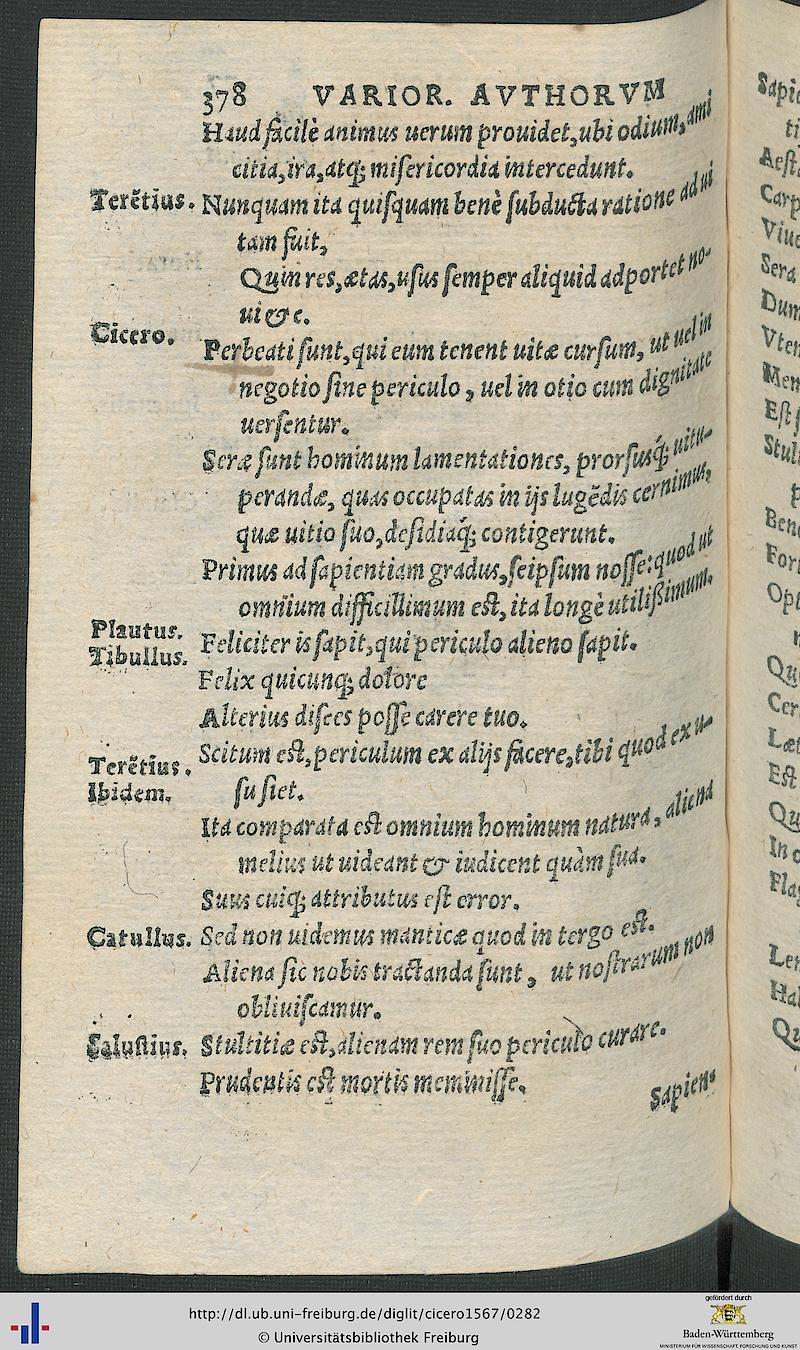 378 VARIOR. AVTHORVM
Haud facilè animus uerum prouidet, ubi odium, ami
citia, ira, atq; misericordia intercedunt.
Terẽtius. Nunquam ita quisquam benè subducta ratione ad ui
tam fuit,
Quin res, ætas, usus semper aliquid adportet no-
ui &c.
Cicero. Perbeati sunt, qui eum tenent uitæ cursum, ut uel in
negotio sine periculo, uel in otio cum dignitate
uersentur.
Seræ sunt hominum lamentationes, prorsusq́; uitu-
perandæ, quas occupatas in ijs lugẽdis cernimus,
quæ uitio suo, desidiaq́; contigerunt.
Primus ad sapientiam gradus, seipsum nosse: quod ut
omnium difficillimum est, ita longè utilißimum.
Plautus. Feliciter is sapit, qui periculo alieno sapit.
Tibullus. Felix quicunq; dolore
Alterius disces posse carere tuo.
Terẽtius. Scitum est, periculum ex alijs facere, tibi quod ex u-
su siet.
Ibidem. Ita comparata est omnium hominum natura, aliena
melius ut uideant & iudicent quàm sua.
Suus cuiq; attributus est error.
Catullus. Sed non uidemus manticæ quod in tergo est.
Aliena sic nobis tractanda sunt, ut nostrarum non
obliuiscamur.
Salustius. Stultitiæ est, alienam rem suo periculo curare.
Prudentis est mortis meminisse.
Sapiens
Aest
Carp
Viue
Sera
Dum
Vten
Men
Est
Stul
Bene
For
Opt
Qu
Cer
Læt
Est
Qu
In
Flag
Len
Ha
Qu
http://dl.ub.uni-freiburg.de/diglit/cicero1567/0282
© Universitätsbibliothek Freiburg
gefördert durch
Baden-Württemberg
MINISTERIUM FÜR WISSENSCHAFT, FORSCHUNG UND KUNST